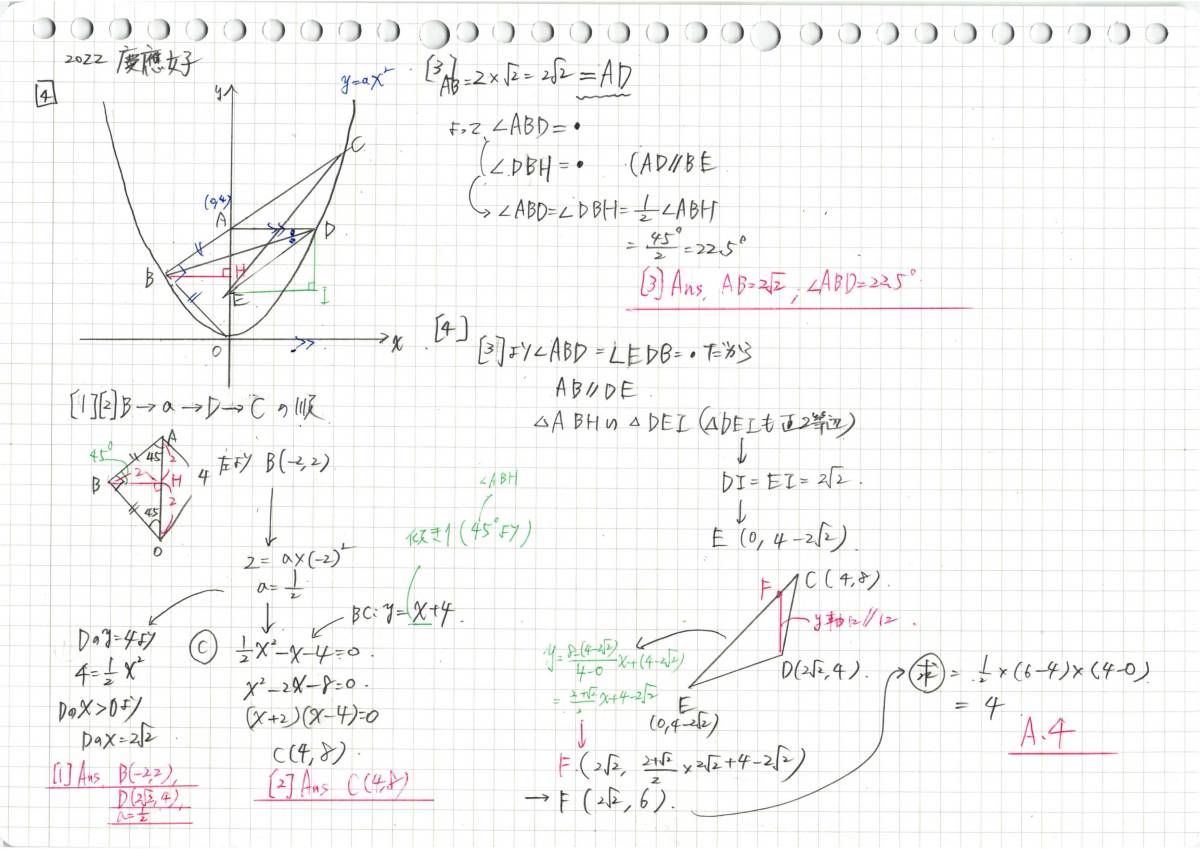 2022 慶應女子
4
y
y=ax²
C
(0,4)
A
D
B
H
E
I
O
x
[1][2]B→a→D→Cの順
A
45°
45
2
4
B
2
H
2
45
O
左より B(-2,2)
2=a×(-2)²
a=1/2
Dのy=4より
4=1/2x²
Dのx>0より
Dのx=2√2
[1]Ans. B(-2,2),
D(2√2,4),
a=1/2
∠ABH
傾き1(45°より)
BC:y=x+4
C
1/2x²-x-4=0.
x²-2x-8=0.
(x+2)(x-4)=0
C(4,8)
[2]Ans C(4,8)
[3]
AB=2×√2=2√2=AD
よって∠ABD=•
∠DBH=• (AD//BE
→∠ABD=∠DBH=1/2∠ABH
=45°/2=22.5°
[3]Ans. AB=2√2, ∠ABD=22.5°
[4]
[3]より∠ABD=∠EDB=•だから
AB//DE
△ABH∽△DEI(△DEIも直2等辺)
DI=EI=2√2.
E(0,4-2√2).
F
C(4,8).
y軸に//に
D(2√2,4)
E
(0,4-2√2)
y=8-(4-2√2)/4-0x+(4-2√2)
=2+√2/2x+4-2√2
F.(2√2, 2+√2/2×2√2+4-2√2)
→F(2√2,6).
求=1/2×(6-4)×(4-0)
=4
A.4